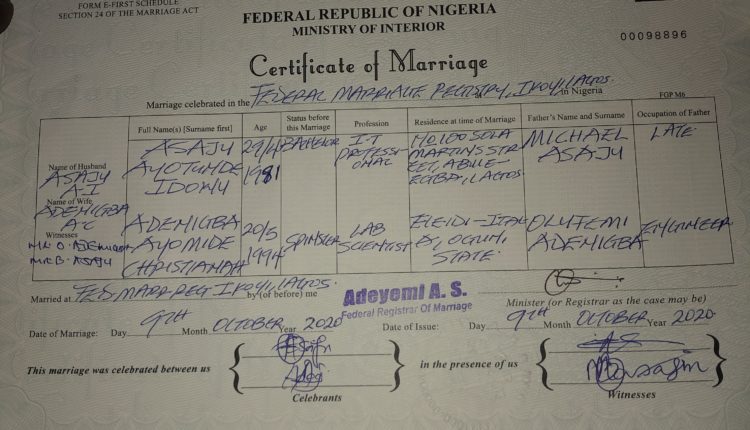 FORM E-FIRST SCHEDULE
SECTION 24 OF THE MARRIAGE ACT
FEDERAL REPUBLIC OF NIGERIA
MINISTRY OF INTERIOR
00098896
Certificate of Marriage
Marriage celebrated in the FEDERAL MARRIAGE REGISTRY, IKOYI, LAGOS. in Nigeria
FGP M6
Full Name(s) [Surname first] Age Status before this Marriage Profession Residence at time of Marriage Father's Name and Surname Occupation of Father
Name of Husband
ASAJU A-I
ASAJU AYOTUNDE IDOWU
29/4 1981
BACHELOR
I.T PROFESSIONAL
MARTINS STREET, ABULE-EGBA, LAGOS
MICHAEL ASAJU
LATE
Name of Wife
ADEMIGBA A-C
ADEMIGBA AYOMIDE CHRISTIANAH
20/5 1994
SPINSTER
LAB SCIENTIST
OGUN STATE.
OLUFEMI ADEMIGBA
ENGINEER
Witnesses
MR O. ADEMIGBA
MR B. ASAJU
Married at FED. MARR. REG IKOYI, LAGOS. by (or before) me
Adeyemi A. S.
Federal Registrar Of Marriage
Minister (or Registrar as the case may be)
Date of Marriage: Day 9TH Month OCTOBER Year 2020 Date of Issue: Day 9TH Month OCTOBER Year 2020.
This marriage was celebrated between us
Celebrants
in the presence of us
Witnesses